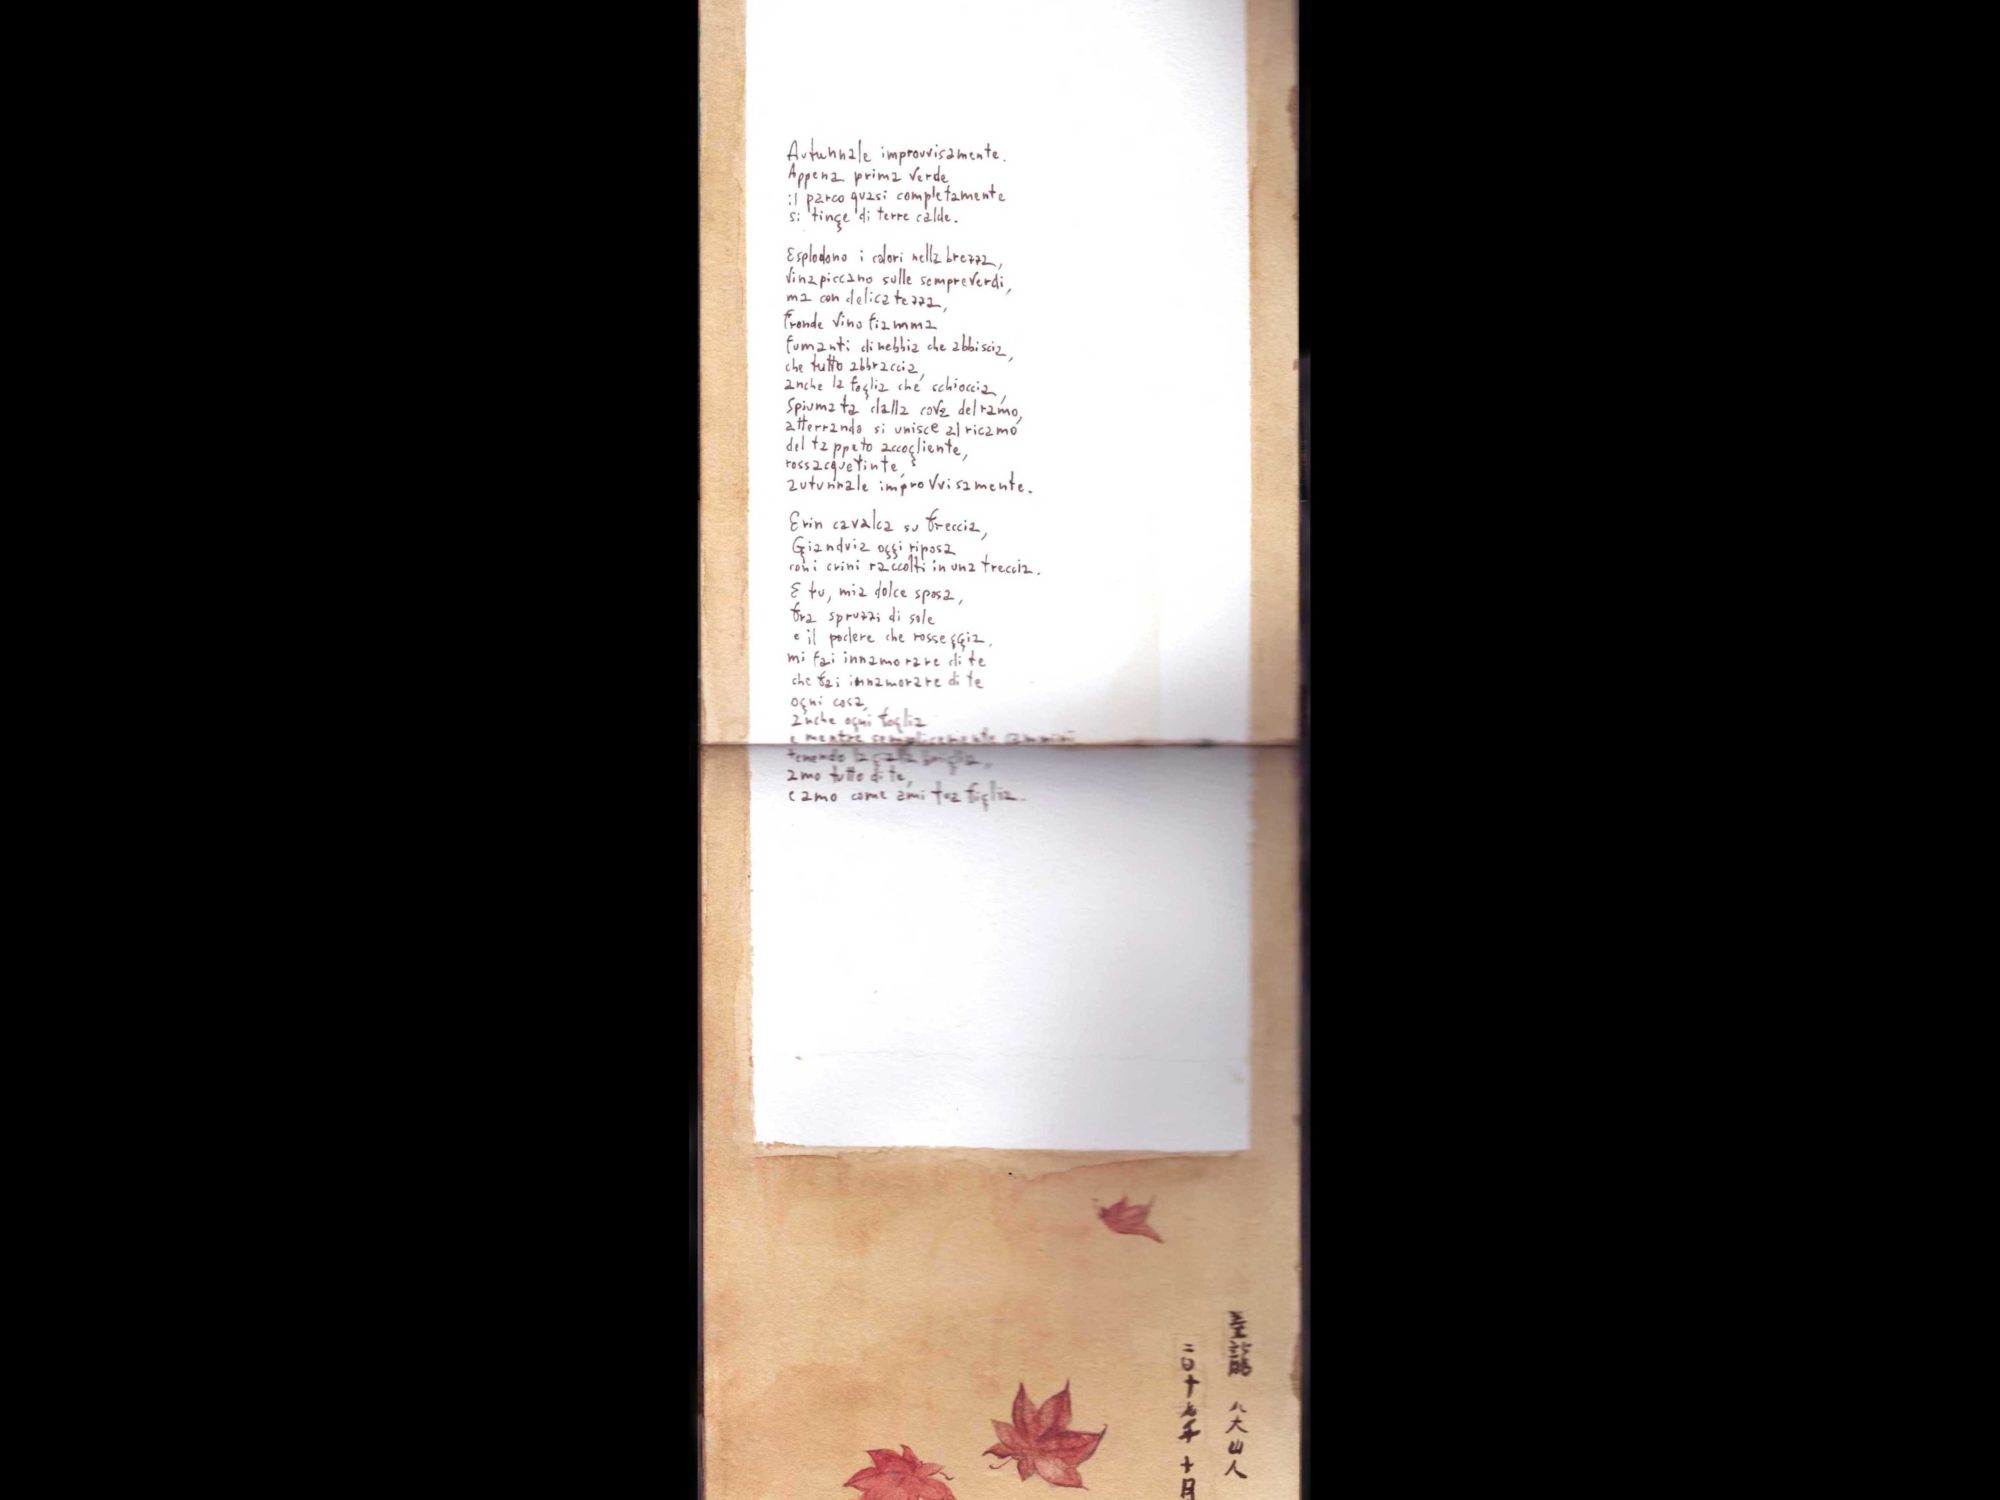 Autunnale improvvisamente.
Appena prima verde
il parco quasi completamente
si tinge di terre calde.
Esplodono i colori nella brezza,
vinapiccano sulle sempreverdi,
ma con delicatezza,
fronde vino fiamma
fumanti di nebbia che abbiscia,
che tutto abbraccia,
anche la foglia che schioccia,
spiumata dalla cova del ramo,
atterrando si unisce al ricamo
del tappeto accogliente,
rossacquetinte,
autunnale improvvisamente.
Erin cavalca su Freccia,
Gianduia oggi riposa
con i crini raccolti in una treccia.
E tu, mia dolce sposa,
fra spruzzi di sole
e il podere che rosseggia,
mi fai innamorare di te
che fai innamorare di te
ogni cosa,
anche ogni foglia
e mentre semplicemente cammini
tenendo la gialla briglia,
amo tutto di te,
e amo come ami tua figlia.
八大山人
二〇十七年 十月